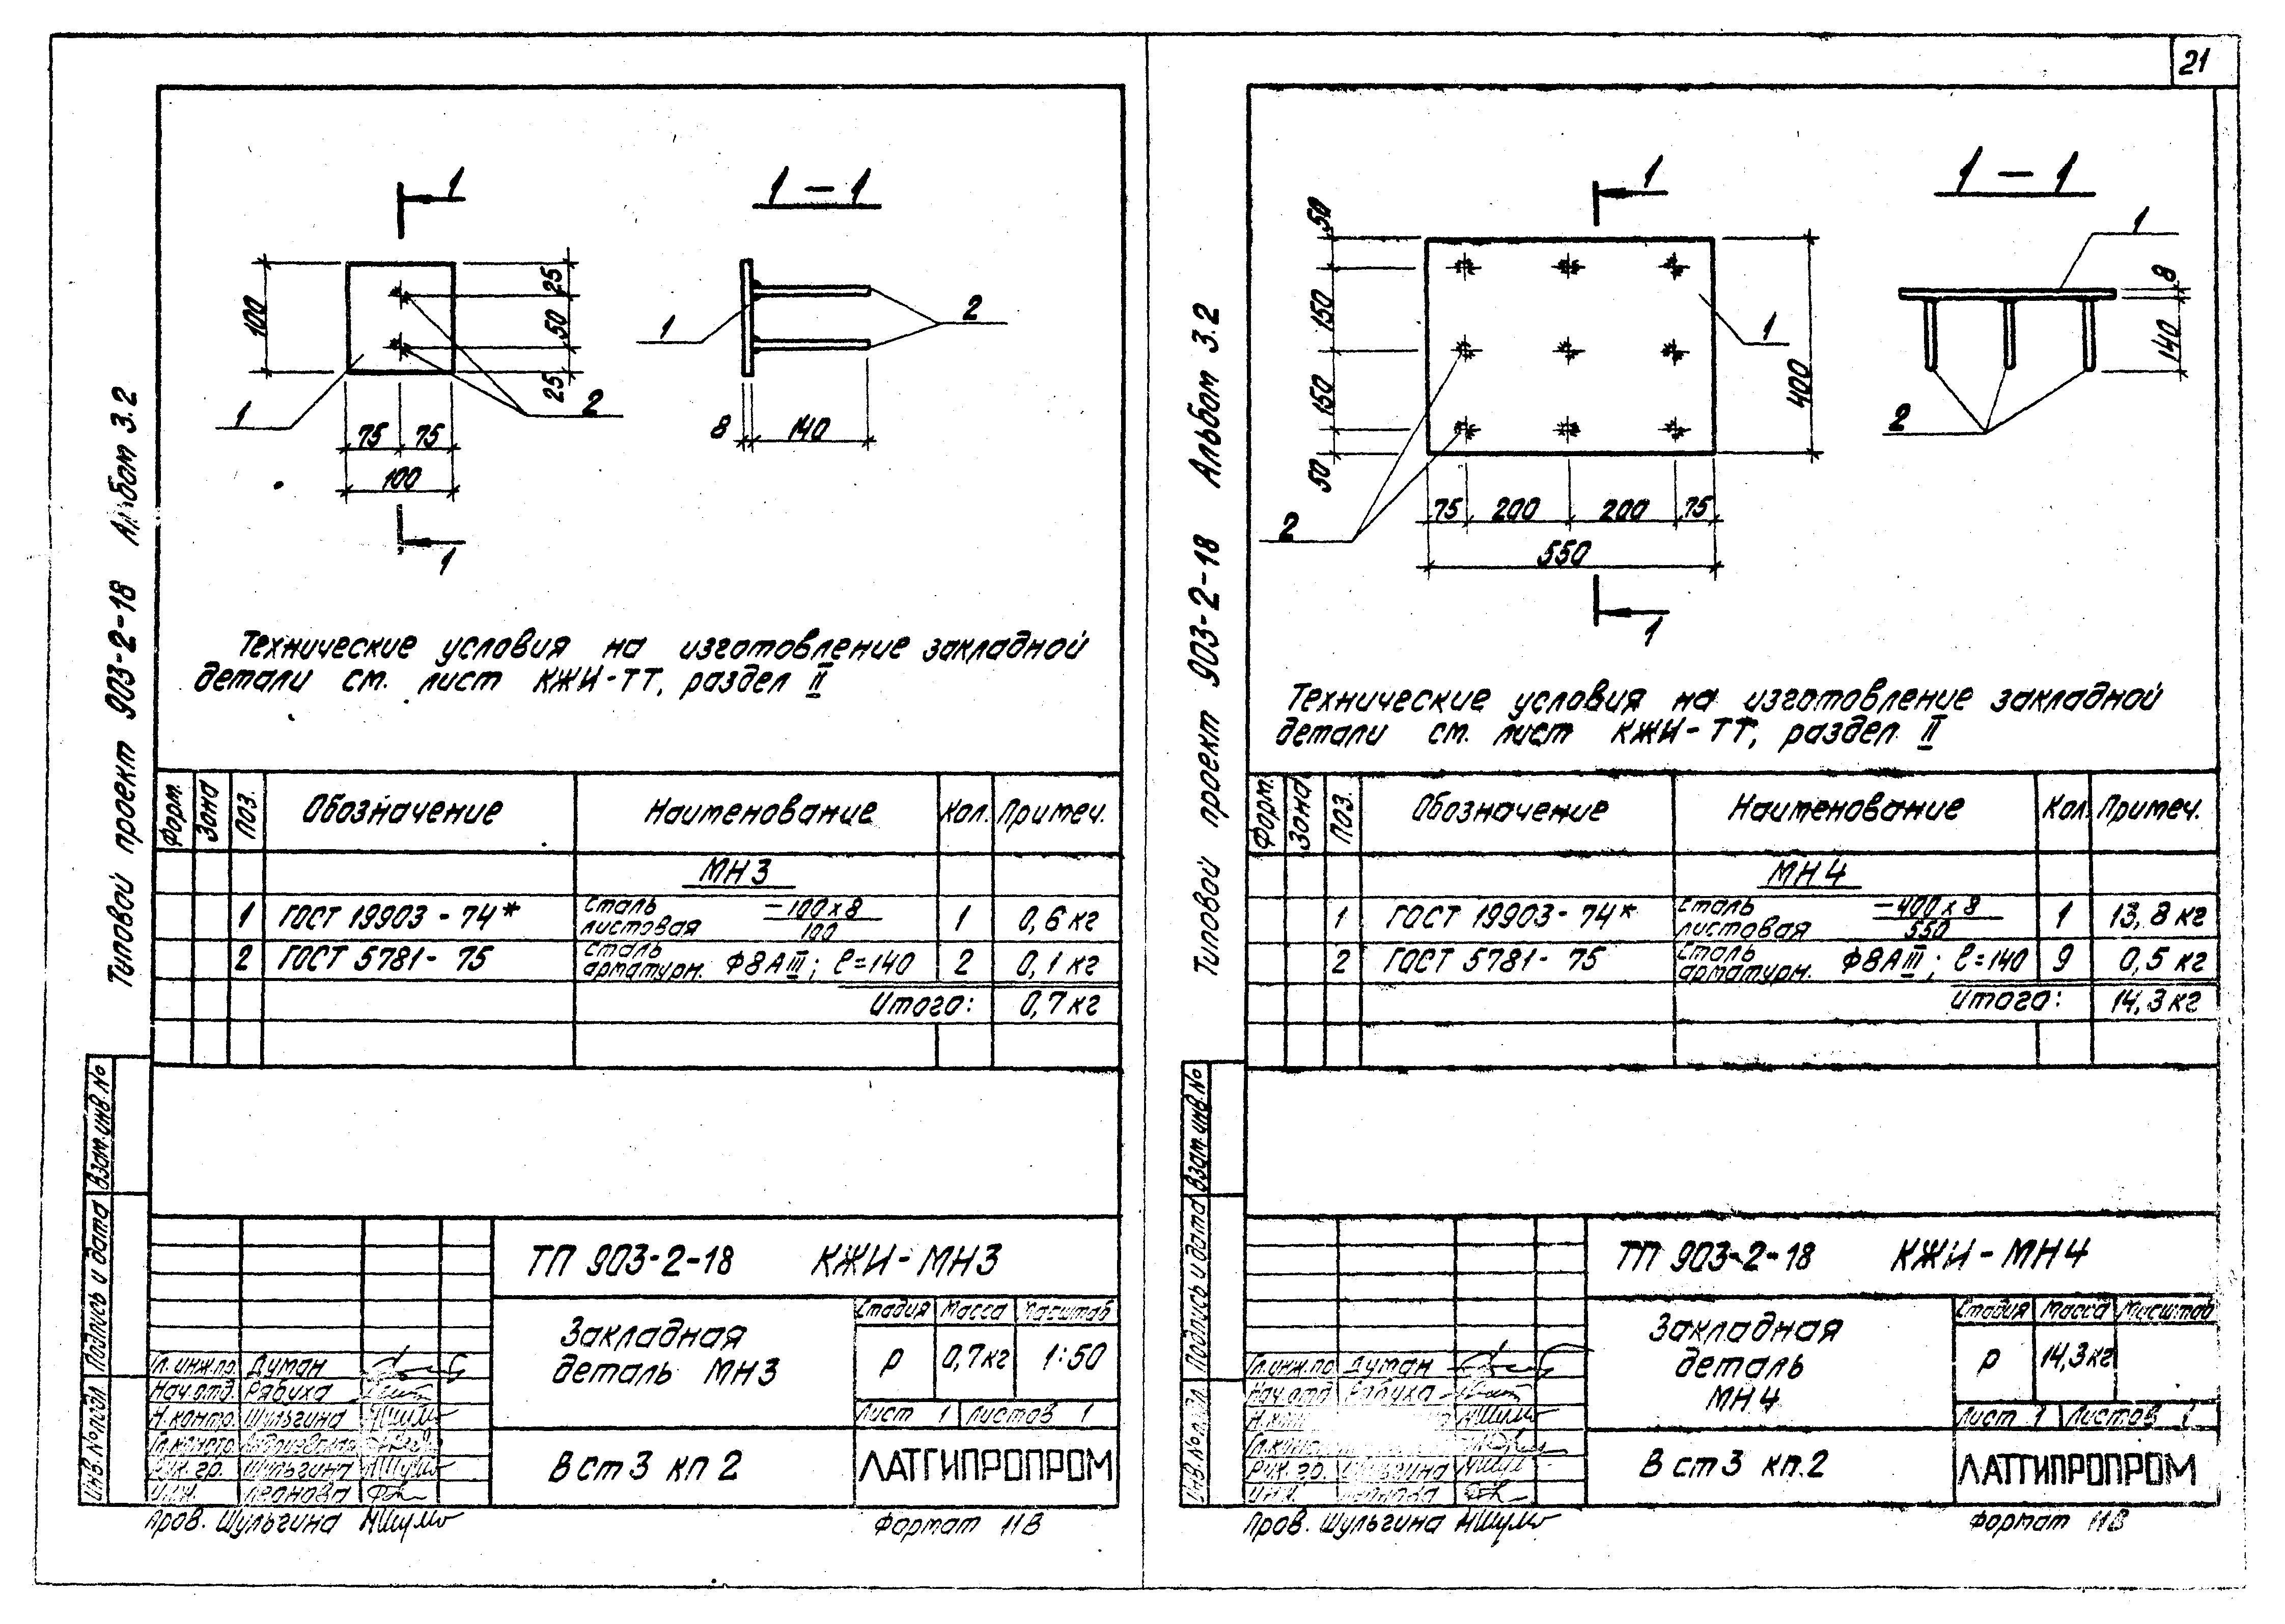 21
Типовой проект 903-2-18 Альбом 3.2
1
1-1
100
25
50
25
1
2
75 75
100
1
1
2
8 140
Технические условия на изготовление закладной
детали см. лист КЖИ-ТТ, раздел II
Форм. Зона Поз. Обозначение Наименование Кол. Примеч.
МН3
1 ГОСТ 19903-74* Сталь листовая -100х8/100 1 0,6 кг
2 ГОСТ 5781-75 Сталь арматурн. Ф8АIII; ℓ=140 2 0,1 кг
Итого: 0,7 кг
Взам.инв.№
Подпись и дата
Инв.№подл
ТП 903-2-18 КЖИ-МН3
Закладная
деталь МН3
Стадия Масса Масштаб
Р 0,7кг 1:50
Лист 1 Листов 1
Вст3 кп2
ЛАТГИПРОПРОМ
Гл.инж.пр Думан
Нач.отд. Рябуха
Н.контр. Шульгина
Гл.констр.
Рук. гр. Шульгина
Инж. Леонова
Пров. Шульгина
Формат 11В
Типовой проект 903-2-18 Альбом 3.2
1
1-1
50
150
150
50
400
1
2
75 200 200 75
550
1
1
8
140
2
Технические условия на изготовление закладной
детали см. лист КЖИ-ТТ, раздел II
Форм. Зона Поз. Обозначение Наименование Кол. Примеч.
МН4
1 ГОСТ 19903-74* Сталь листовая -400х8/550 1 13,8 кг
2 ГОСТ 5781-75 Сталь арматурн. Ф8АIII; ℓ=140 9 0,5 кг
Итого: 14,3 кг
Взам.инв.№
Подпись и дата
ТП 903-2-18 КЖИ-МН4
Закладная
деталь
МН4
Стадия Масса Масштаб
Р 14,3кг
Лист 1 Листов 1
Вст3 кп.2
ЛАТГИПРОПРОМ
Гл.инж.пр Думан
Нач.отд Рябуха
Рук. гр. Шульгина
Инж.
Пров. Шульгина
Формат 11В